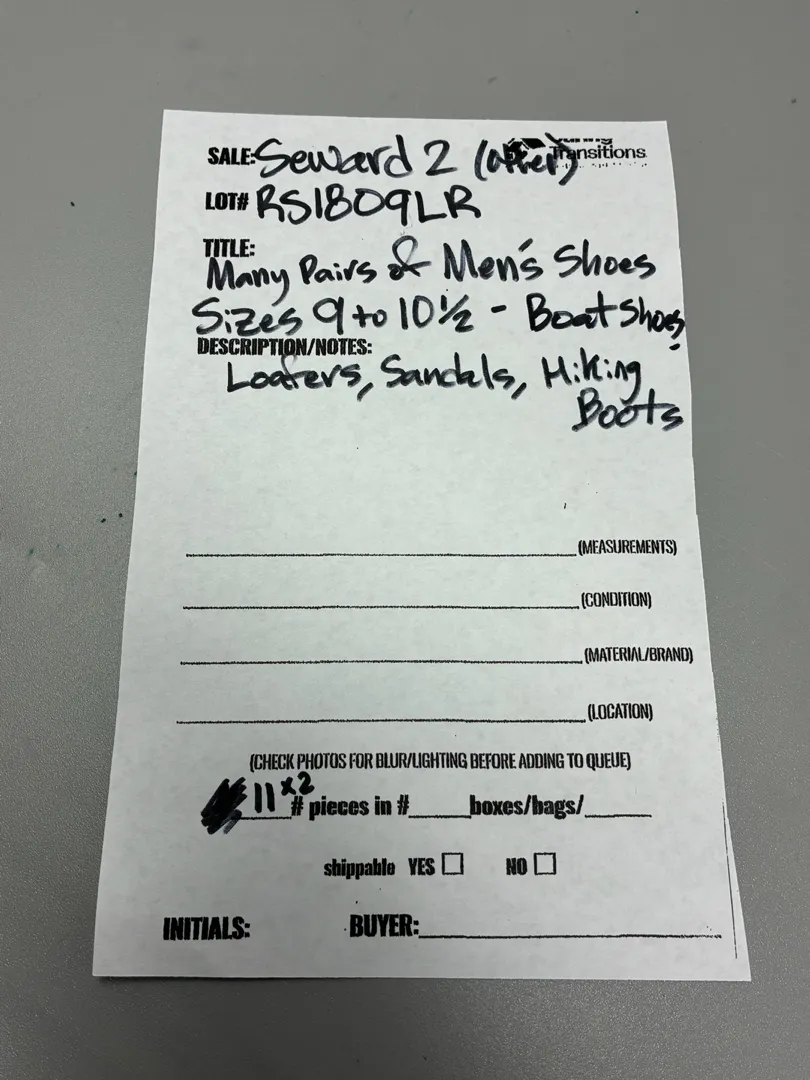 SALE: Seward 2 (other) Transitions
LOT# RS1809LR
TITLE:
Many Pairs of Men's Shoes
Sizes 9 to 10 1/2 - Boat Shoes,
DESCRIPTION/NOTES:
Loafers, Sandals, Hiking
Boots
(MEASUREMENTS)
(CONDITION)
(MATERIAL/BRAND)
(LOCATION)
(CHECK PHOTOS FOR BLUR/LIGHTING BEFORE ADDING TO QUEUE)
11 x2 # pieces in #_____boxes/bags/______
shippable YES ☐ NO ☐
INITIALS: BUYER: